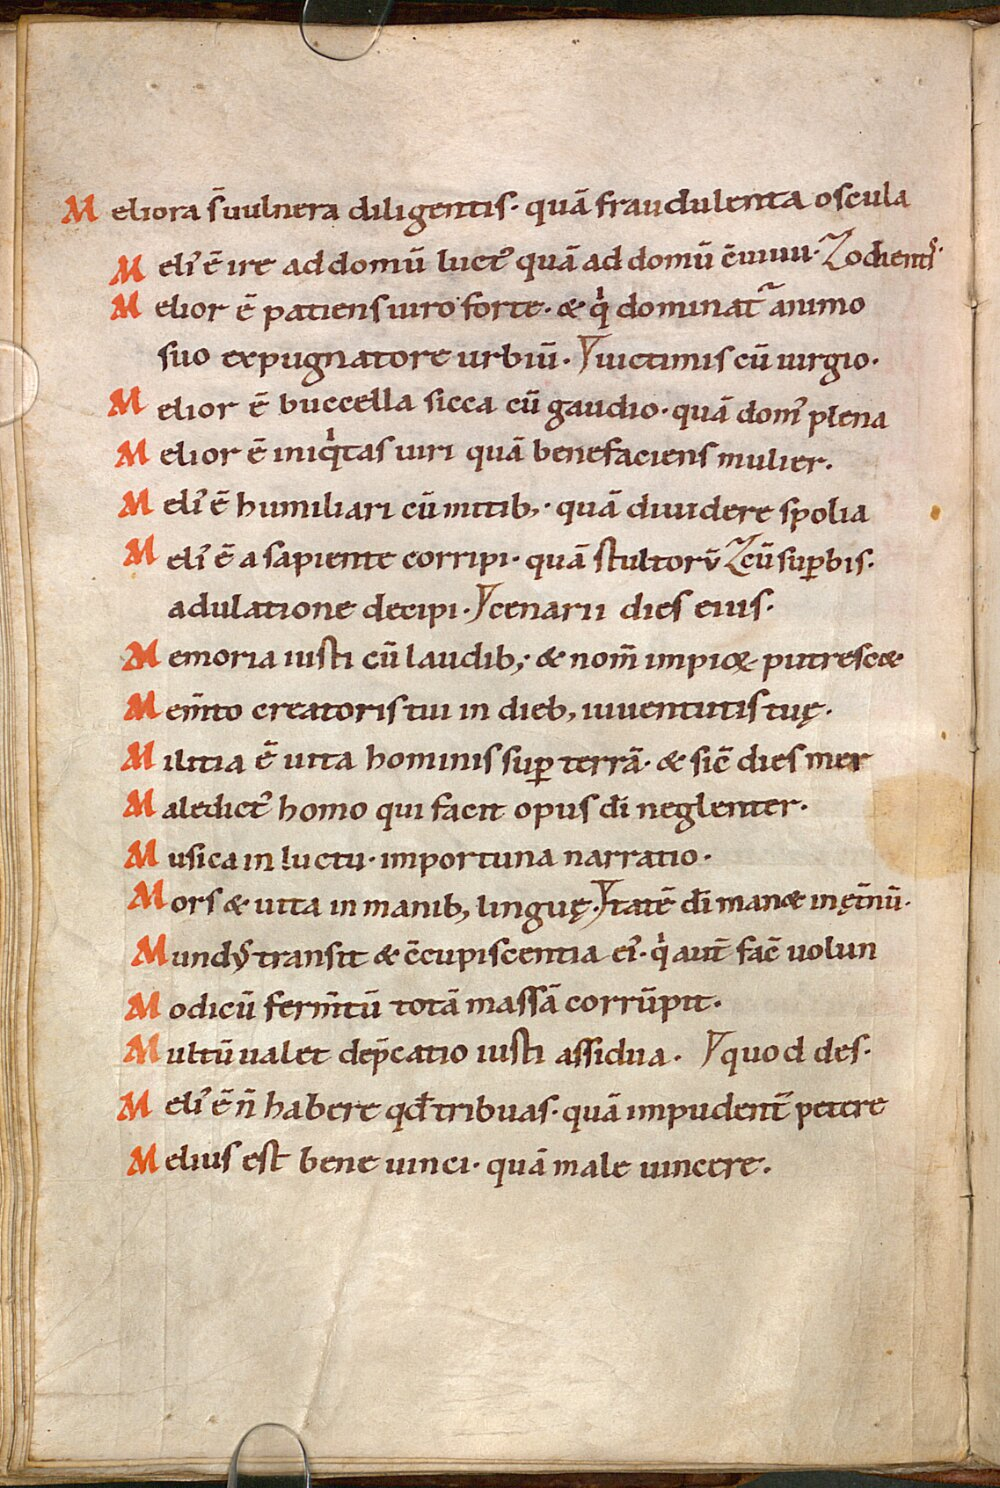 Meliora s̄ uulnera diligentis· quā fraudulenta oscula
Meli᷒ ē ire ad domū luct᷒ quā ad domū c̄uiuii· odientis᷒·
Melior ē patiens uiro forte· & qͥ dominat᷑ animo
suo expugnatore urbiū· uictimis cū iurgio·
Melior ē buccella sicca cū gaudio· quā dom᷒ plena
Melior ē iniqͥtas uiri quā benefaciens mulier.
Meli᷒ ē humiliari cū mitib,· quā diuidere spolia
Meli᷒ ē a sapiente corripi· quā stultorū cū suꝑbis·
adulatione decipi· cenarii dies eius·
Memoria iusti cū laudib;· & nom̄ impioꝝ putresc&
Mem̄to creatoris tui in dieb, iuuentutis tuę·
Militia ē uita hominis suꝑ terrā· & sic̄ dies mer
Maledict᷒ homo qui facit opus dī neglenter·
Musica in luctu· importuna narratio·
Mors & uita in manib, linguę· tatē dī man& in ęt̄nū·
Mund᷒ transit & c̄cupiscentia ei᷒· qͥ aut̄ fac̄ uolun
Modicū ferm̄tū totā massā corrūpit·
Multū ualet dep̄catio iusti assidua· quod des·
Meli᷒ ē n̄ habere qđ tribuas· quā impudent᷑ petere
Melius est bene uinci· quā male uincere·